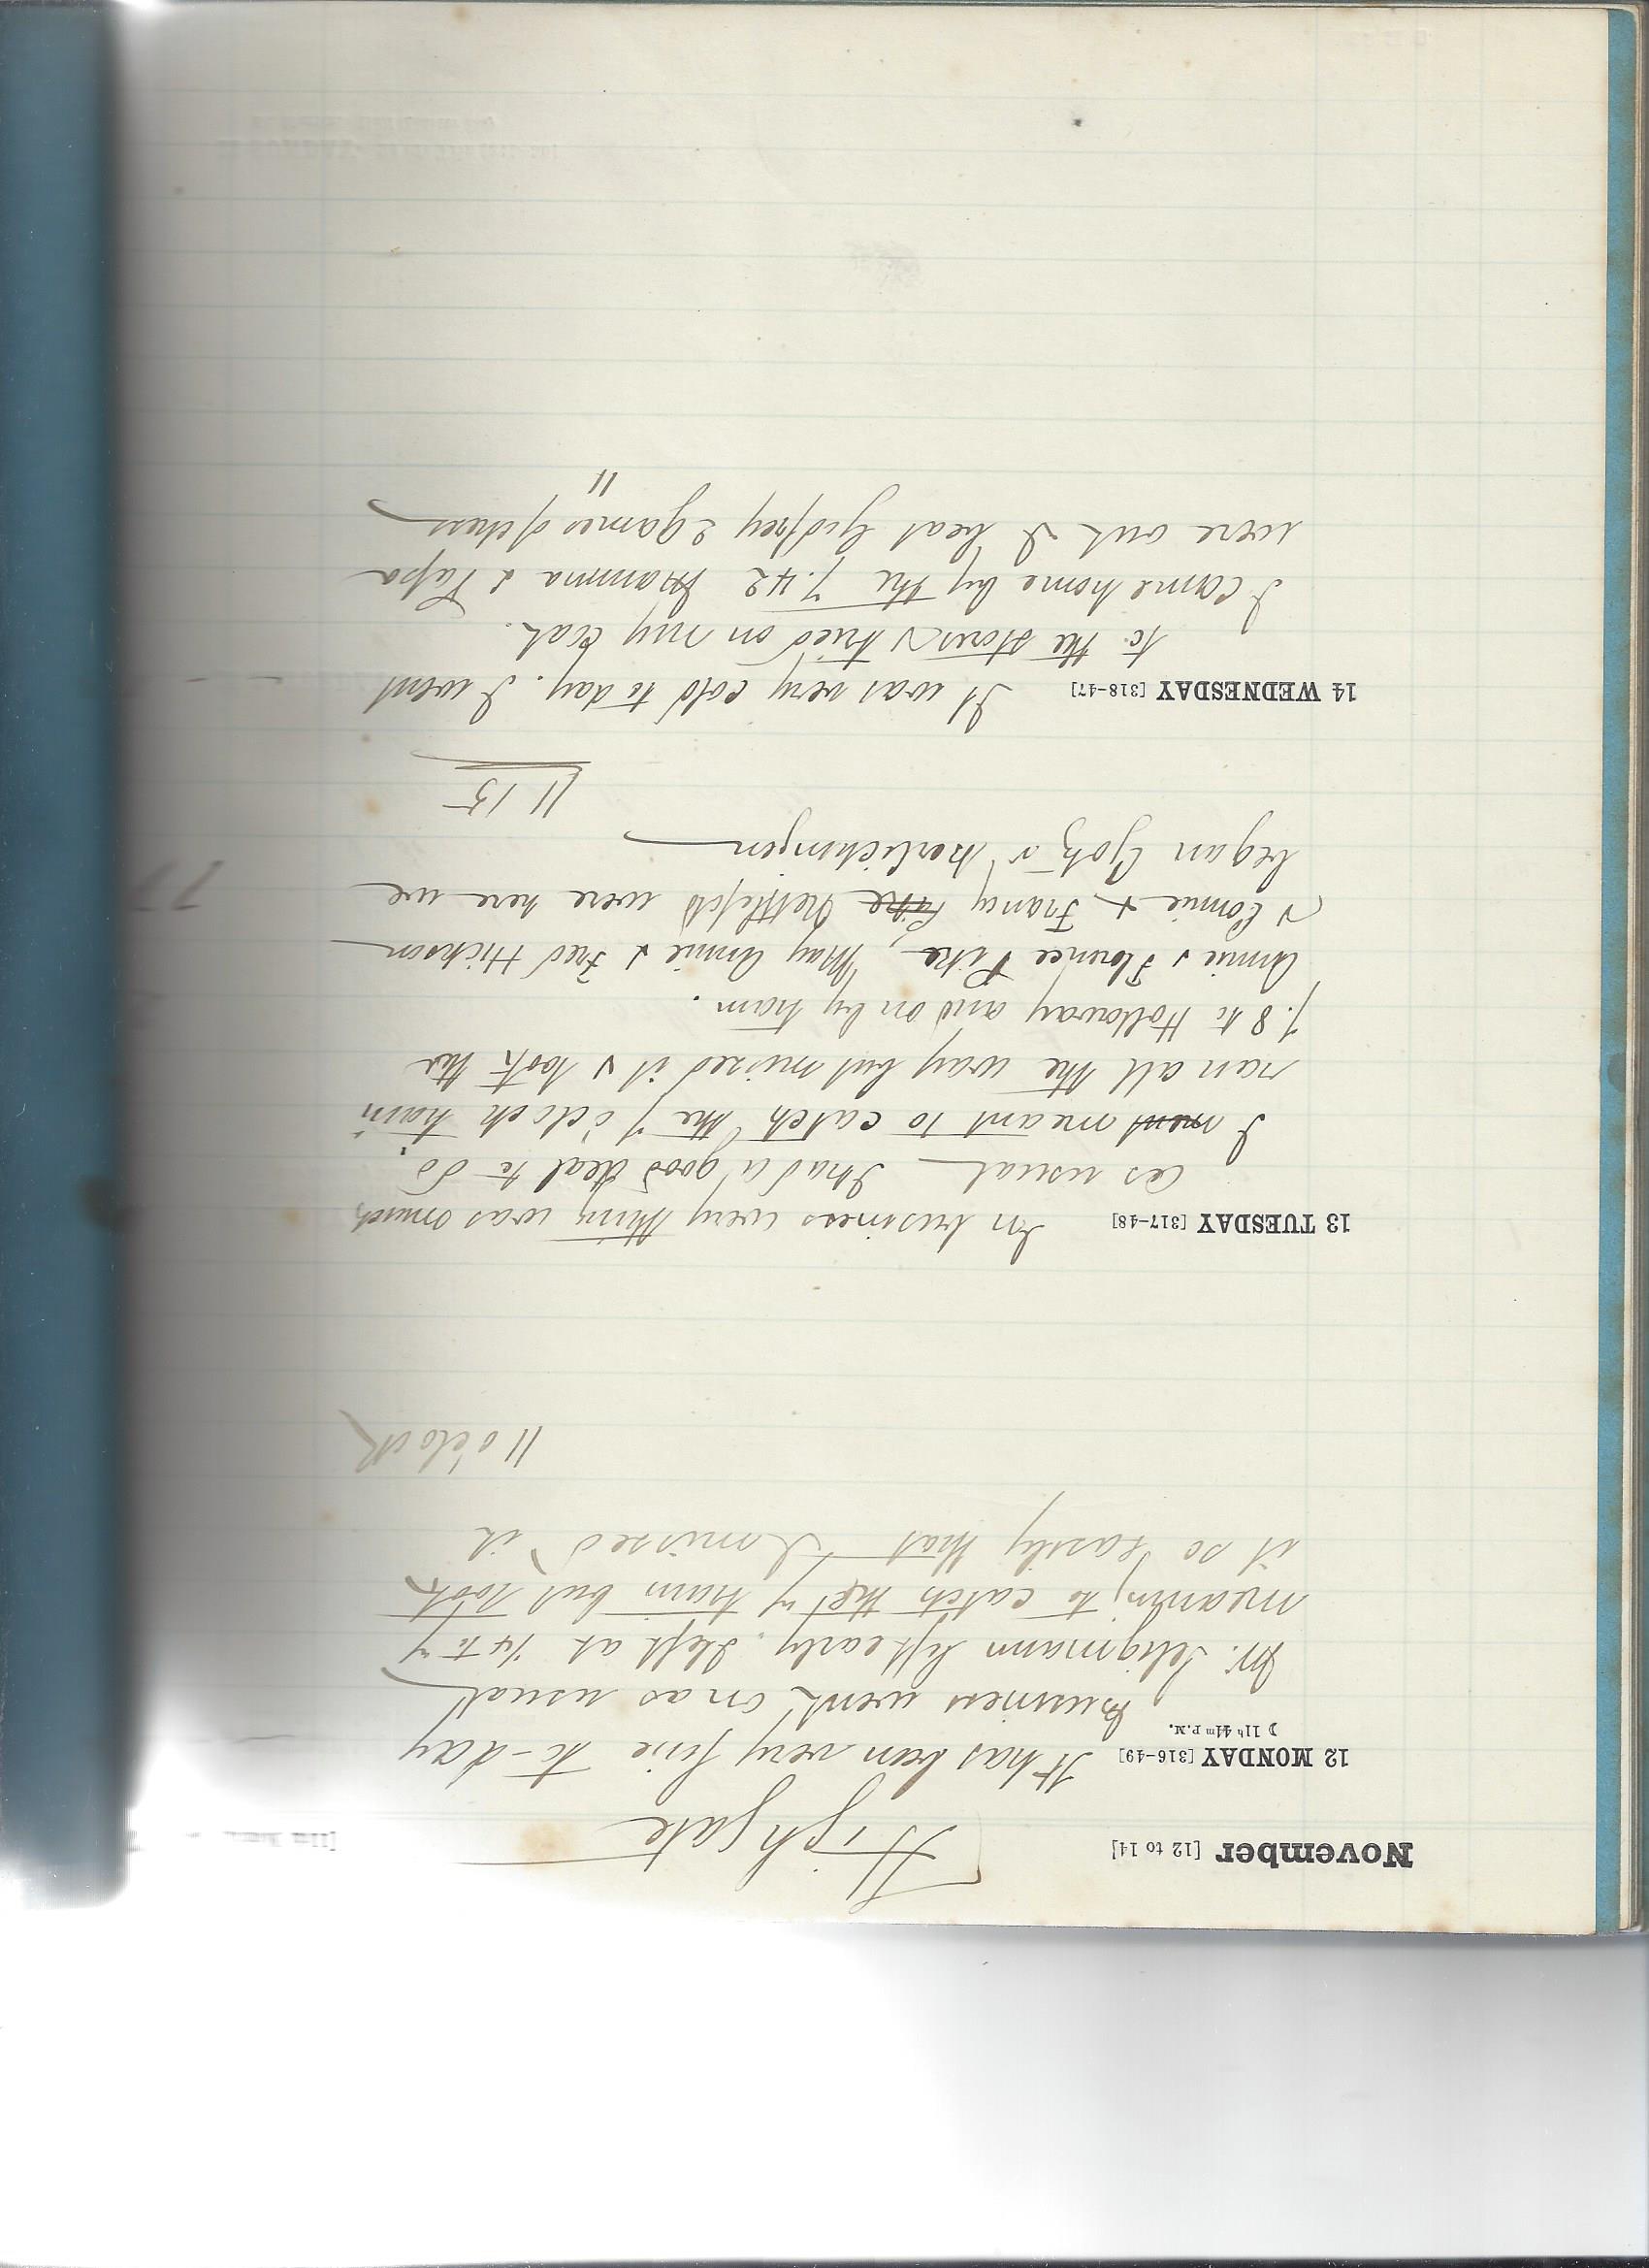 November [12 to 14]
Highgate
12 MONDAY [316-49] It has been very fine to-day
☽ 11h 44m P.M.
Business went on as usual
Mr. Seligmann left early. I left at 1/4 to 7
meaning to catch the 7 train but took
it so easily that I missed it
11 o'clock
13 TUESDAY [317-48] In business every thing was much
as usual I had a good deal to do
I ment meant to catch the 7 o'clock train
ran all the way but missed it & took the
7.8 to Holloway and on by tram.
Annie & Florence Pike, May Annie & Fred Hickson
& Connie & Francy Pike Nettlefold were here we
began Gotz v Berlichingen
11 15
14 WEDNESDAY [318-47] It was very cold to day. I went
to the stores & tried on my coat.
I came home by the 7.42 Mamma & Papa
were out I beat Godfrey 2 games of chess
11